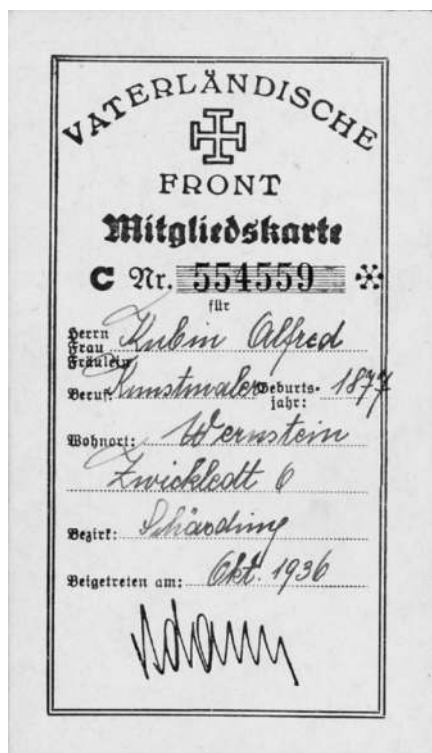 VATERLÄNDISCHE
FRONT
Mitgliedskarte
C Nr. 554559
für
Herrn
Frau Kubin Alfred
Fräulein
Beruf: Kunstmaler Geburts-jahr: 1877
Wohnort: Wernstein
Zwickledt 6
Bezirk: Schärding
Beigetreten am: Okt. 1936